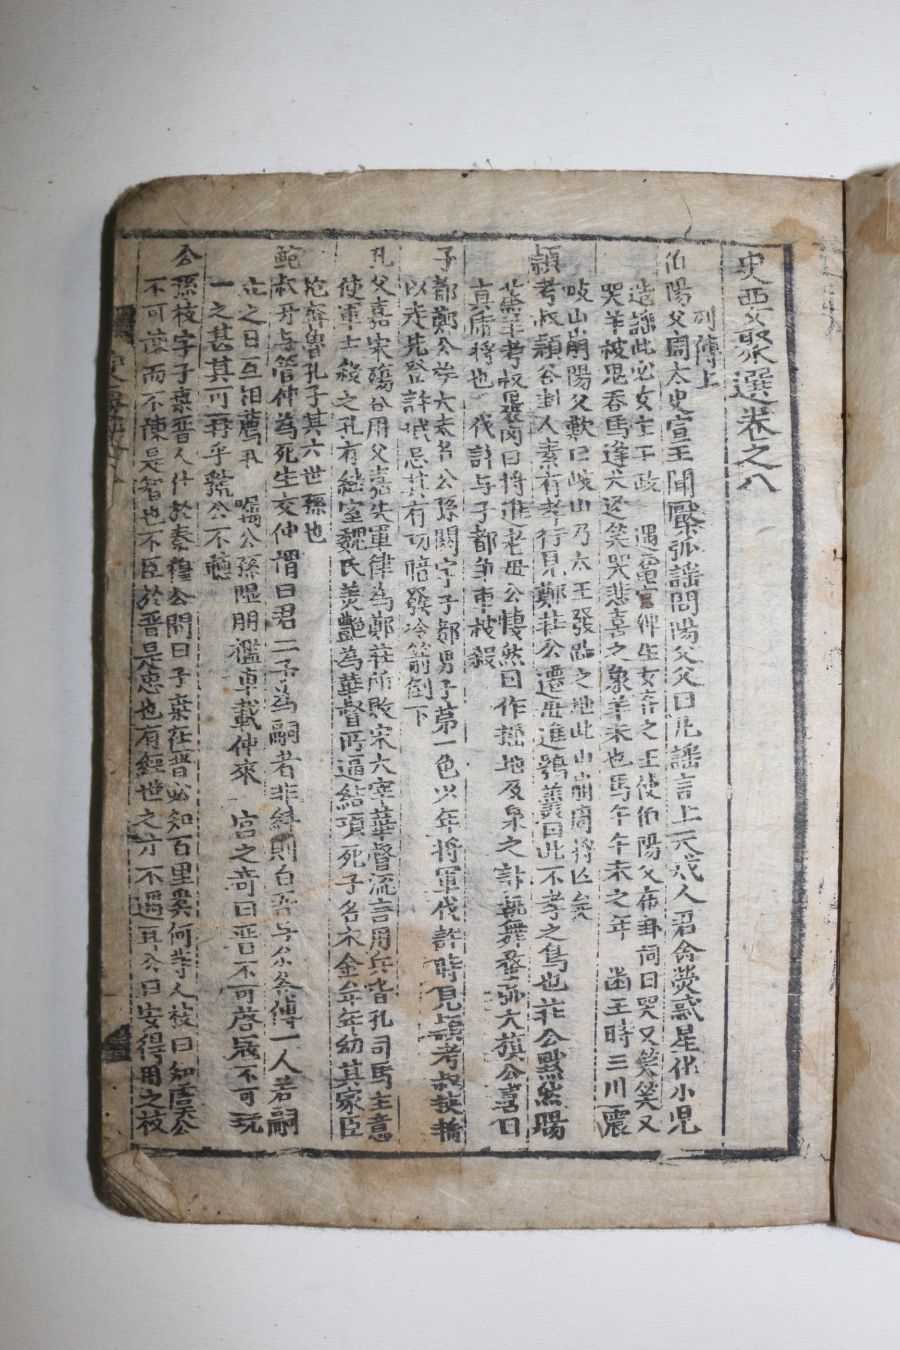 史要聚選卷之八
列傳上
伯陽父周太史宣王聞檿弧謠問陽父父曰凡謠言上天戒人君令熒惑星化小児
造謠此必女主干政 遇童宮俾生女弃之王使伯陽父布卦詞曰哭又笑笑又
哭羊被鬼吞馬逢犬逐笑哭悲喜之象羊未也馬午午未之年 幽王時三川震
岐山崩陽父歎曰岐山乃太王發跡之地此山崩周將亡矣
頴考叔頴谷封人素有孝行見鄭莊公遷母進鴞羹曰此不孝之鳥也莊公默然賜
羊考叔裹肉曰將進老母公悽然曰作掘地及泉之計 舞蝥弧大旗公喜曰
真虎將也 伐許与子都爭車被殺
子都鄭公 大夫名公孫閼字子都男子第一色以年將軍伐許時見頴考叔挾輈
以走先登許城忌其有功暗發冷箭釗下
孔父嘉宋殤公用父嘉失軍律為鄭莊所敗宋六宰華督流言用兵者孔司馬主意
使軍士殺之孔有継室魏氏美艶為華督所逼結項死子名木金年幼其家臣
抱奔魯孔子其六世孫也
鮑叔牙与管仲為死生交仲謂曰君二子為嗣者非糾則白吾与尔各傅一人若嗣
立之日互相薦引 囑公孫隰朋檻車載仲來 宮之奇曰晋不可啓宼不可玩
一之甚其可再乎虢公不聽
公孫枝字子桑晋人仕於秦穆公問曰子桑在晋必知百里奚何等人枝曰知虞公
不可諫而不諫是智也不臣於晋是忠也有經世之才不遇耳公曰安得用之枝